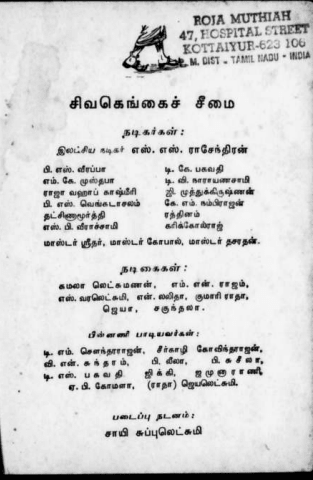 ROJA MUTHIAH
47, HOSPITAL STREET
KOTTAIYUR-623 106
P. M. DIST - TAMIL NADU - INDIA
சிவகெங்கைச் சீமை
நடிகர்கள்:
இலட்சிய நடிகர் எஸ். எஸ். ராசேந்திரன்
பி. எஸ். வீரப்பா டி. கே. பகவதி
எம். கே. முஸ்தபா டி. வி. நாராயணசாமி
ராஜா வஹாப் காஷ்மீரி ஜி. முத்துக்கிருஷ்ணன்
பி. எஸ். வெங்கடாசலம் கே. எம். நம்பிராஜன்
தட்சிணாமூர்த்தி ரத்தினம்
எஸ். பி. வீராச்சாமி கரிக்கோல்ராஜ்
மாஸ்டர் ஸ்ரீதர், மாஸ்டர் கோபால், மாஸ்டர் தசரதன்.
நடிகைகள்:
கமலா லெட்சுமணன், எம். என். ராஜம்,
எஸ். வரலெட்சுமி, என். லலிதா, குமாரி ராதா,
ஜெயா, சகுந்தலா.
பின்னணி பாடியவர்கள்:
டி. எம். சௌந்தரராஜன், சீர்காழி கோவிந்தராஜன்,
வி. என். சுந்தரம், பி. லீலா, பி. சுசீலா,
டி. எஸ். பகவதி ஜிக்கி, ஜமுனாராணி,
ஏ. பி. கோமளா, (ராதா) ஜெயலெட்சுமி.
படைப்பு நடனம்:
சாயி சுப்புலெட்சுமி